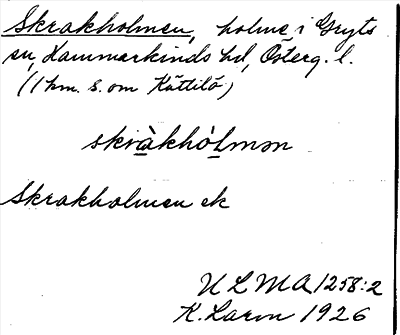 Skrakholmen, holme i Gryts
sn, Hammarkinds hd, Österg. l.
(1 km. s. om Kättilö)
skràkhòlmən
Skrakholmen ek
ULMA 1258:2
K. Larm 1926